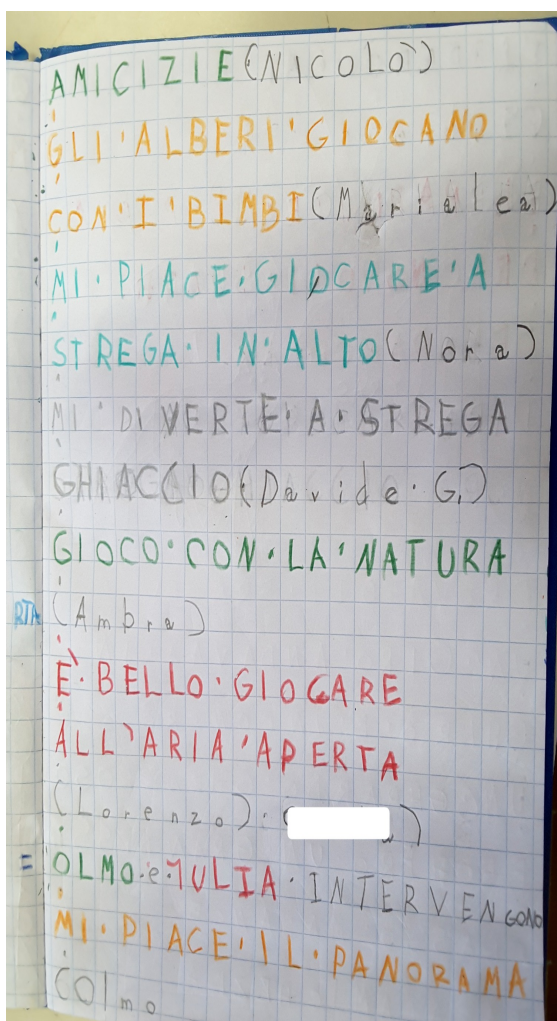 AMICIZIE (NICOLÒ)
GLI·ALBERI·GIOCANO
CON·I·BIMBI (Marialea)
MI·PIACE·GIOCARE·A
STREGA·IN·ALTO (Nora)
MI·DIVERTE·A·STREGA
GHIACCIO (Davide·G.)
GIOCO·CON·LA·NATURA
RTA (Ambra)
È·BELLO·GIOCARE
ALL'ARIA·APERTA
(Lorenzo)·( )
= OLMO·e·JULIA·INTERVENGONO
MI·PIACE·IL·PANORAMA
(Olmo